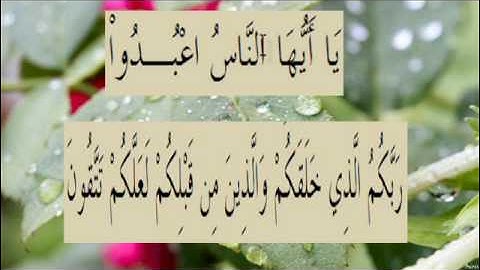 يَا أَيُّهَا النَّاسُ اعْبُـــدُواْ
رَبَّكُمُ الَّذِي خَلَقَكُمْ وَالَّذِينَ مِن قَبْلِكُمْ لَعَلَّكُمْ تَتَّقُونَ